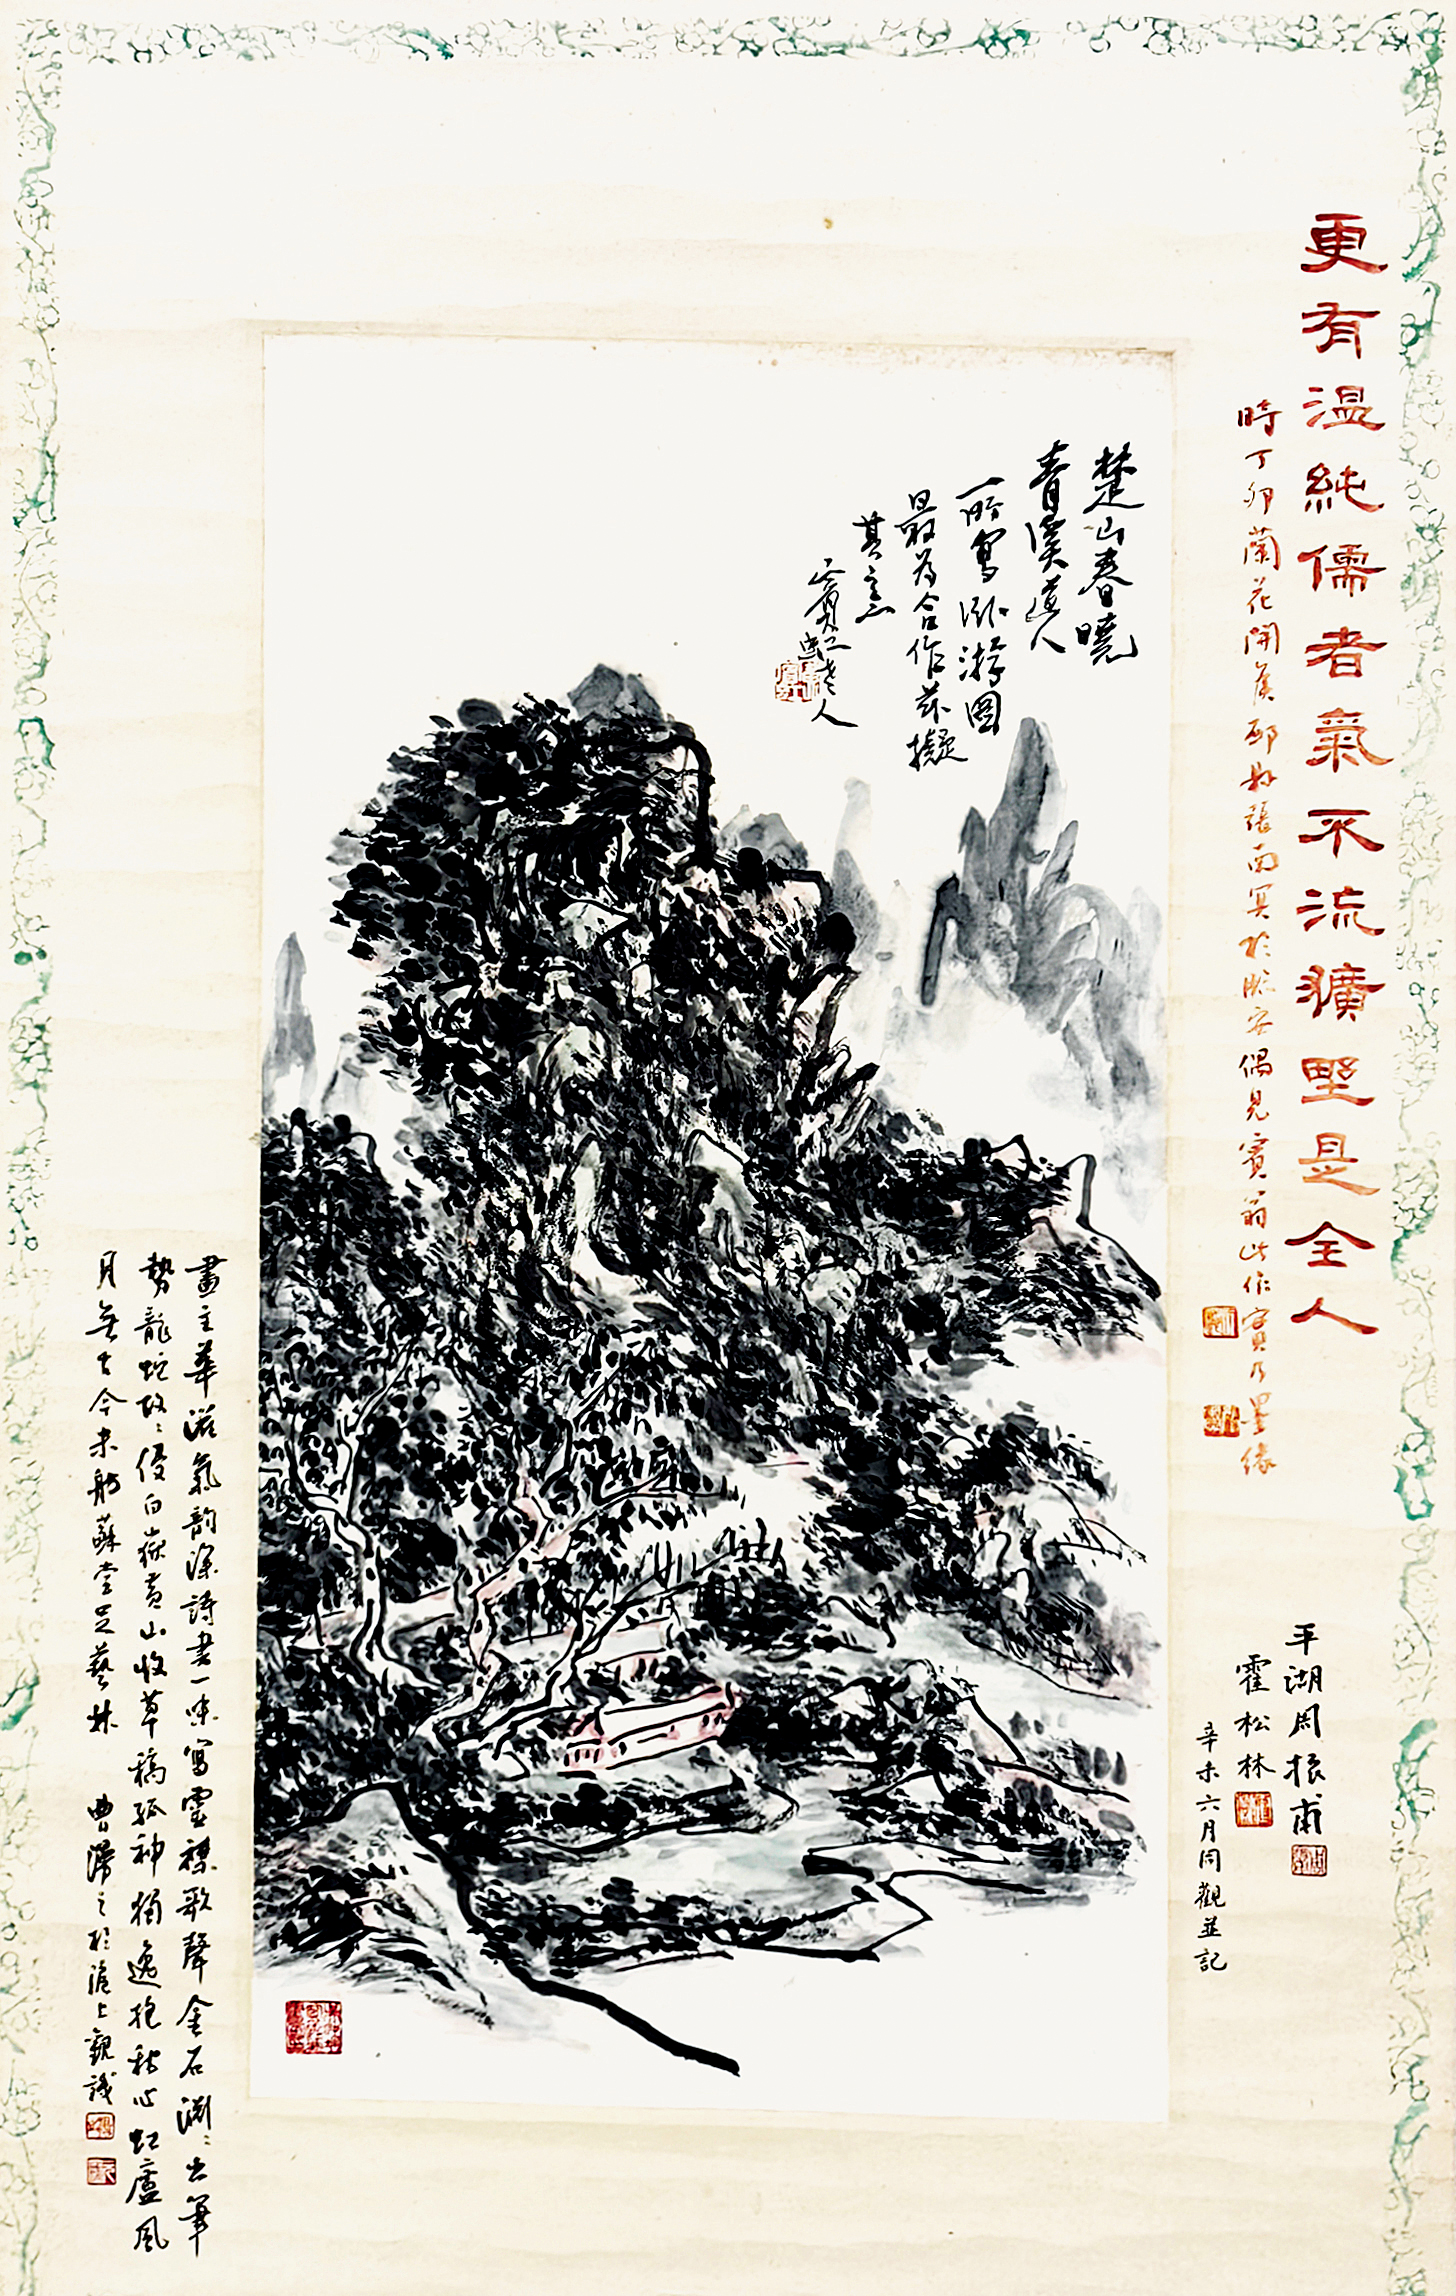 更有温純儒者氣不流獷野是全人
時丁卯蘭花開候邱縣張南冥於臨安偶見賓翁此作實乃墨緣
平湖周振甫
霍松林
辛未六月同觀並記
楚山春曉
青溪道人
一所寫臥游图
最为合作兹擬
其意
賓虹老人
畫主華滋氣韵深詩書一味寫靈襟歌聲金石淵〻出筆
勢龍蛇故〻侵白嶽黄山收草稿孤神獨逸抱秋心虹廬風
月無古今未舫蘇堂足藝林
曹漫之於滬上觀識